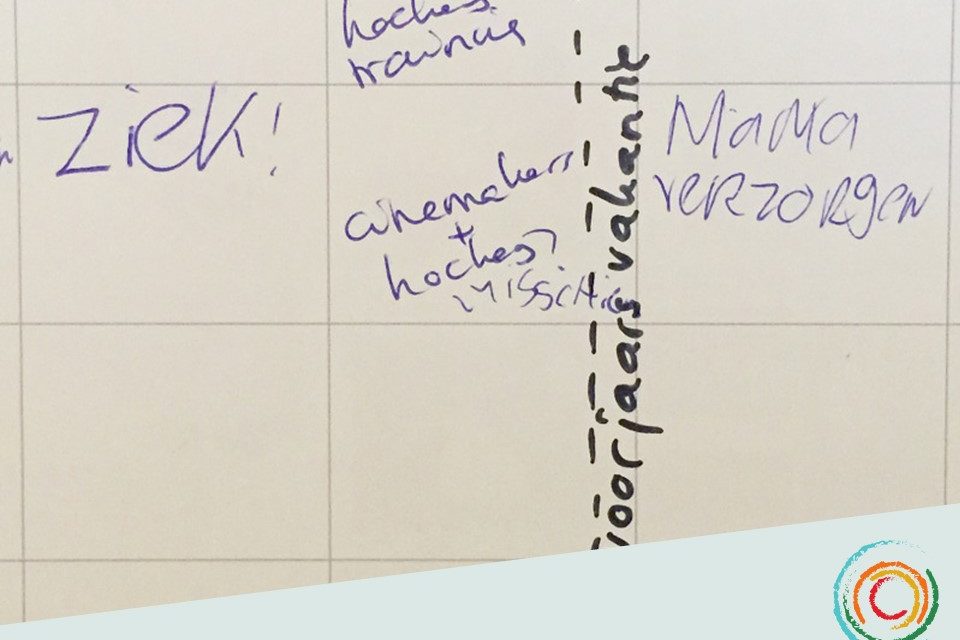 hockey
training
ziek!
cinemakers
+
hockey?
misschien
voorjaars vakantie
Mama
verzorgen